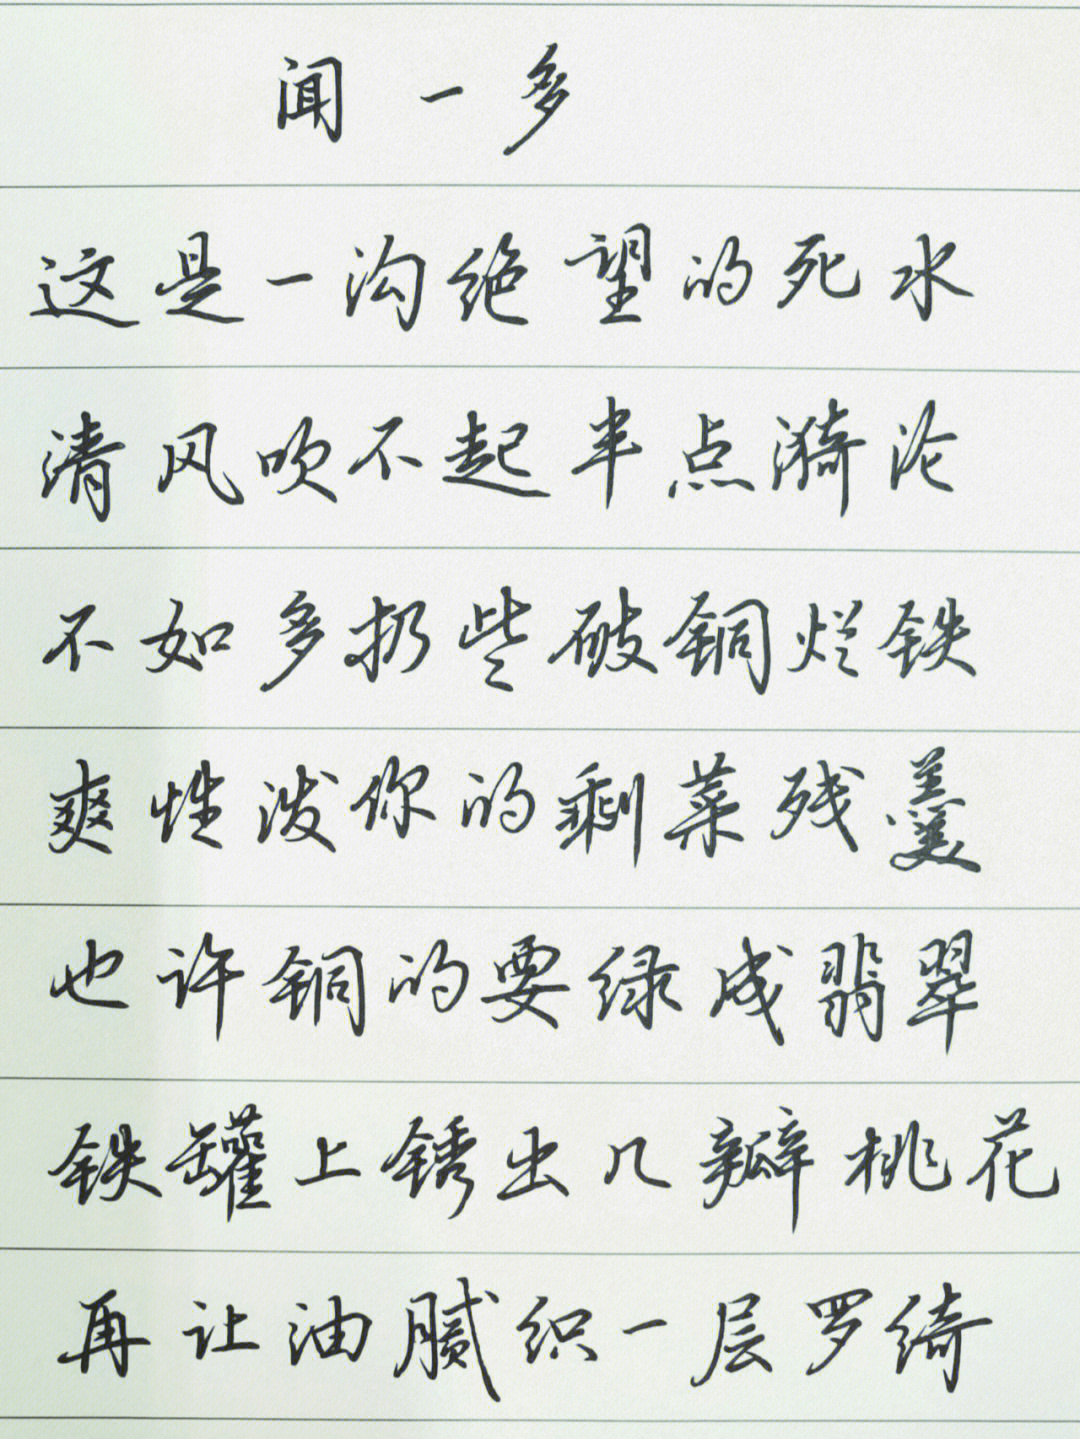 闻一多
这是一沟绝望的死水
清风吹不起半点漪沦
不如多扔些破铜烂铁
爽性泼你的剩菜残羹
也许铜的要绿成翡翠
铁罐上锈出几瓣桃花
再让油腻织一层罗绮